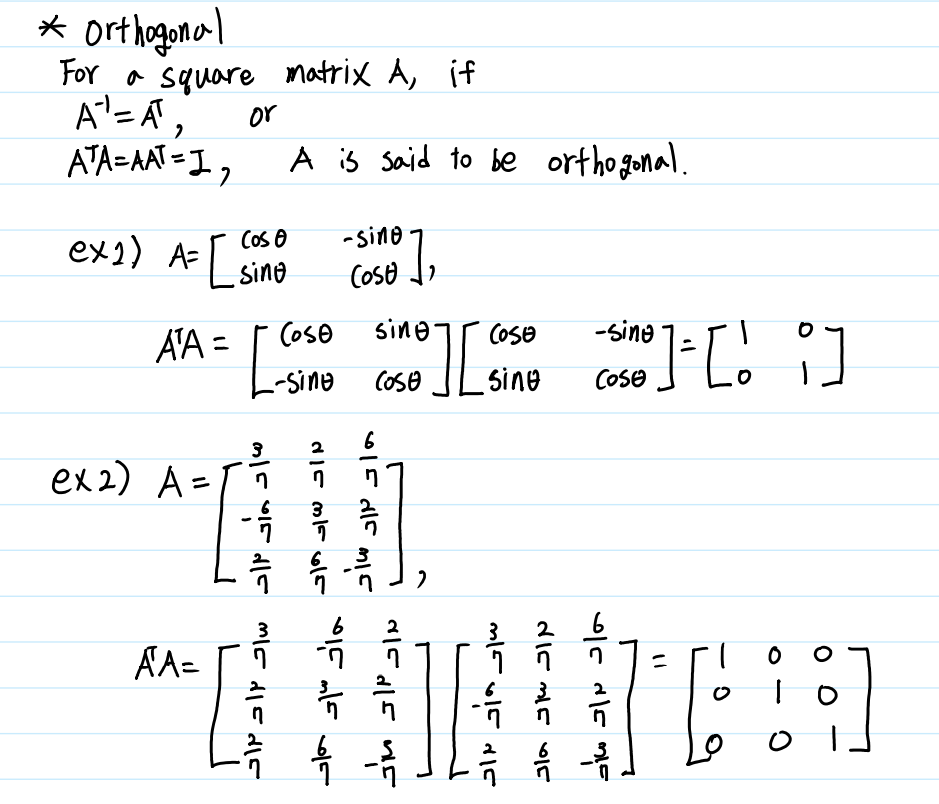 * orthogonal
For a square matrix A, if
A⁻¹=Aᵀ, or
AᵀA=AAᵀ=I, A is said to be orthogonal.
ex1) A=[cosθ -sinθ
sinθ cosθ],
AᵀA = [cosθ sinθ
-sinθ cosθ][cosθ -sinθ
sinθ cosθ]=[1 0
0 1]
ex2) A=[3/7 2/7 6/7
-6/7 3/7 2/7
2/7 6/7 -3/7],
AᵀA=[3/7 -6/7 2/7
2/7 3/7 2/7
2/7 6/7 -3/7][3/7 2/7 6/7
-6/7 3/7 2/7
2/7 6/7 -3/7]=[1 0 0
0 1 0
0 0 1]